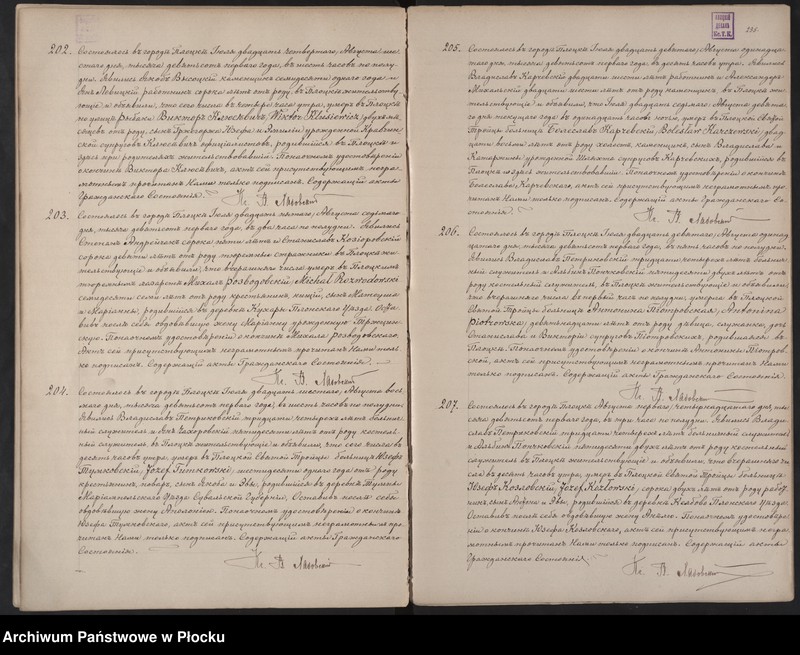 202. Состоялось въ городѣ Плоцкѣ Іюля двадцать четвертаго, Августа шес-
таго дня, тысяча девятьсотъ перваго года, въ шесть часовъ по полу-
дни. Явились Якобъ Высоцкій каменщикъ семидесяти одного года и
работникъ сорока лѣтъ отъ роду, въ Плоцкѣ жительству-
ющіе и объявили, что сего числа въ четыре часа утра, умеръ въ Плоцкѣ
по улицѣ Рыбаки Викторъ Клюсевичъ, Wiktor Klusiewicz, двухъ мѣ-
сяцевъ отъ роду, сынъ и Эмиліи урожденной
супруговъ Клюсевичъ родившійся въ Плоцкѣ и
здѣсь при родителяхъ жительствовавшій. По наочномъ удостовѣреніи
о кончинѣ Виктора Клюсевича, актъ сей присутствующимъ негра-
мотнымъ прочитанъ Нами только подписанъ. Содержащій акты
Гражданскаго Состоянія.
203. Состоялось въ городѣ Плоцкѣ Іюля двадцать пятаго, Августа седьмаго
дня, тысяча девятьсотъ перваго года, въ два часа по полудни. Явились
Степанъ Андрейчикъ сорока пяти лѣтъ и Станиславъ Козіоровскій
сорока девяти лѣтъ отъ роду тюремные стражники въ Плоцкѣ жи-
тельствующіе и объявили, что вчерашняго числа умеръ въ Плоцкомъ
тюремномъ лазаретѣ Михаилъ Розводовскій, Michał Rozwodowski
семидесяти семи лѣтъ отъ роду крестьянинъ, нищій, сынъ Матеуша
и Маріанны, родившійся въ деревнѣ Кухары Плонскаго Уѣзда. Оста-
вивъ послѣ себя овдовѣвшую жену Маріанну урожденную
По наочномъ удостовѣреніи о кончинѣ Михаила Розводовскаго,
Актъ сей присутствующимъ неграмотнымъ прочитанъ Нами толь-
ко подписанъ. Содержащій акты Гражданскаго Состоянія.
204. Состоялось въ городѣ Плоцкѣ Іюля двадцать шестаго, Августа вось-
маго дня, тысяча девятьсотъ перваго года, въ шесть часовъ по полудни.
Явились Владиславъ Петриковскій тридцати четырехъ лѣтъ больнич-
ный служитель и пятидесяти лѣтъ отъ роду костель-
ный служитель, въ Плоцкѣ жительствующіе и объявили, что сего числа въ
десять часовъ утра, умеръ въ Плоцкой Святой Троицы больницѣ Іосифъ
Тунковскій, Józef Tunkowski, шестидесяти одного года отъ роду
крестьянинъ, поваръ, сынъ Якова и Эвы, родившійся въ деревнѣ
Маріампольскаго Уѣзда Сувалкской Губерніи, Оставивъ послѣ себя
овдовѣвшую жену Аполонію. По наочномъ удостовѣреніи о кончинѣ
Іосифа Тунковскаго, актъ сей присутствующимъ неграмотнымъ про-
читанъ Нами только подписанъ. Содержащій акты Гражданскаго
Состоянія.
205. Состоялось въ городѣ Плоцкѣ Іюля двадцать девятаго, Августа одиннадца-
таго дня, тысяча девятьсотъ перваго года, въ десять часовъ утра. Явились
Владиславъ Карчевскій двадцати шести лѣтъ работникъ и Александръ
Михальскій двадцати шести лѣтъ отъ роду въ Плоцкѣ жи-
тельствующіе и объявили, что Іюля двадцать седьмаго, Августа девята-
го дня текущаго года въ одиннадцать часовъ ночи, умеръ въ Плоцкой Святой
Троицы больницѣ Болеславъ Карчевскій, Bolesław Karczewski, двад-
цати восьми лѣтъ отъ роду холостъ, каменщикъ, сынъ Владислава и
Катаржины урожденной супруговъ Карчевскихъ, родившійся въ
Плоцкѣ и здѣсь жительствовавшій. По наочномъ удостовѣреніи о кончинѣ
Болеслава Карчевскаго, актъ сей присутствующимъ неграмотнымъ про-
читанъ Нами только подписанъ. Содержащій акты Гражданскаго Со-
стоянія.
206. Состоялось въ городѣ Плоцкѣ Іюля двадцать девятаго, Августа одиннад-
цатаго дня, тысяча девятьсотъ перваго года, въ пять часовъ по полудни.
Явились Владиславъ Петриковскій тридцати четырехъ лѣтъ больнич-
ный служитель и пятидесяти двухъ лѣтъ отъ
роду костельный служитель, въ Плоцкѣ жительствующіе и объявили,
что вчерашняго числа въ первый часъ по полудни, умерла въ Плоцкой
Святой Троицы больницѣ Антонина Піотровская, Antonina
Piotrowska, девятнадцати лѣтъ отъ роду, дѣвица, служанка, дочь
Станислава и Викторіи супруговъ Піотровскихъ, родившаяся въ
Плоцкѣ. По наочномъ удостовѣреніи о кончинѣ Антонины Піотров-
ской, актъ сей присутствующимъ неграмотнымъ прочитанъ Нами
только подписанъ. Содержащій акты Гражданскаго Состоянія.
207. Состоялось въ городѣ Плоцкѣ Августа перваго, четырнадцатаго дня, ты-
сяча девятьсотъ перваго года, въ три часа по полудни. Явились Влади-
славъ Петриковскій тридцати четырехъ лѣтъ больничный служитель
и пятидесяти двухъ лѣтъ отъ роду костельный
служитель въ Плоцкѣ жительствующіе и объявили, что вчерашняго чи-
сла въ десять часовъ утра, умеръ въ Плоцкой Святой Троицы больницѣ
Іосифъ Козловскій, Józef Kozłowski, сорока двухъ лѣтъ отъ роду работ-
никъ, сынъ и Эвы, родившійся въ деревнѣ Плонскаго Уѣзда,
Оставивъ послѣ себя овдовѣвшую жену По наочномъ удостовѣре-
ніи о кончинѣ Іосифа Козловскаго, актъ сей присутствующимъ негра-
мотнымъ прочитанъ Нами только подписанъ. Содержащій акты
Гражданскаго Состоянія.
Archiwum Państwowe w Płocku